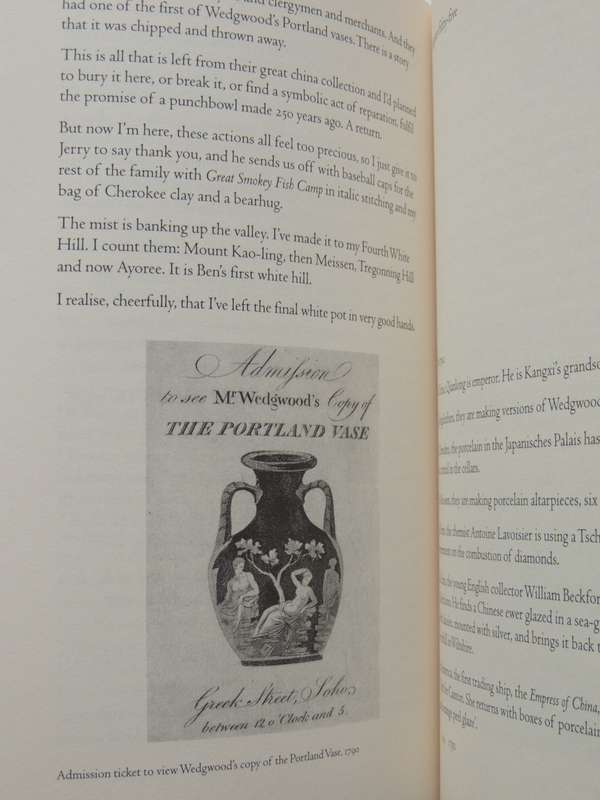 and clergymen and merchants. And they
had one of the first of Wedgwood's Portland vases. There is a story
that it was chipped and thrown away.
This is all that is left from their great china collection and I'd planned
to bury it here, or break it, or find a symbolic act of reparation, fulfil
the promise of a punchbowl made 250 years ago. A return.
But now I'm here, these actions all feel too precious, so I just give it to
Jerry to say thank you, and he sends us off with baseball caps for the
rest of the family with Great Smokey Fish Camp in italic stitching and my
bag of Cherokee clay and a bearhug.
The mist is banking up the valley. I've made it to my Fourth White
Hill. I count them: Mount Kao-ling, then Meissen, Tregonning Hill
and now Ayoree. It is Ben's first white hill.
I realise, cheerfully, that I've left the final white pot in very good hands.
Admission
to see Mr Wedgwood's Copy of
THE PORTLAND VASE
Greek Street, Soho,
between 12 o'Clock and 5.
Admission ticket to view Wedgwood's copy of the Portland Vase, 1790
Qianlong is emperor. He is Kangxi's grandso
they are making versions of Wedgwood
the porcelain in the Japanisches Palais has
in the cellars.
they are making porcelain altarpieces, six
the chemist Antoine Lavoisier is using a Tsch
on the combustion of diamonds.
the young English collector William Beckfor
He finds a Chinese ewer glazed in a sea-g
mounted with silver, and brings it back t
in Wiltshire.
the first trading ship, the Empress of China,
Canton. She returns with boxes of porcelain
peel glaze'.